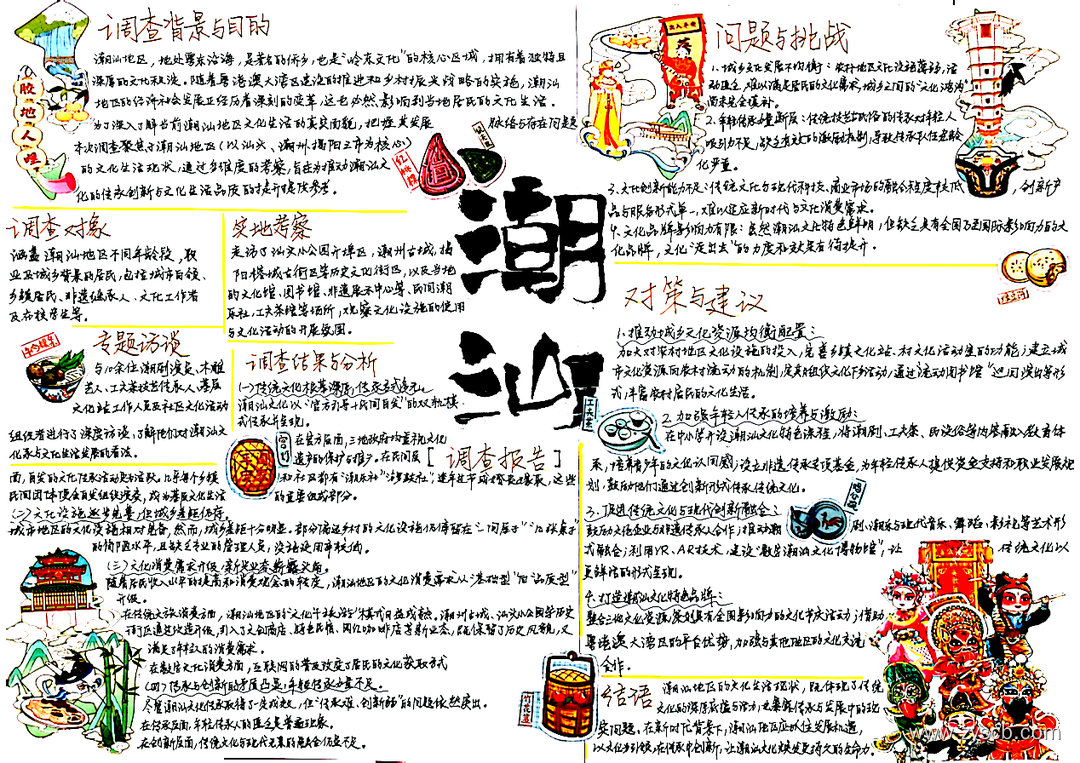 调查背景与目的
潮汕地区，地处粤东沿海，是著名的侨乡，也是"岭东文化"的核心区域，拥有着独特且
深厚的文化积淀。随着粤港澳大湾区建设的推进和乡村振兴战略的实施，潮汕
地区的经济社会发展正经历着深刻的变革，这也必然影响到当地居民的文化生活。
为了深入了解当前潮汕地区文化生活的真实面貌，把握其发展脉络与存在问题
本次调查聚焦于潮汕地区（以汕头、潮州、揭阳三市为核心）
的文化生活现状，通过多维度的考察，旨在为推动潮汕文
化的传承创新与文化生活品质的提升提供参考。
胶地人
红桃粿
调查对象
涵盖潮汕地区不同年龄段，职
业及城乡背景的居民，包括城市白领、
乡镇居民、非遗继承人、文化工作者
及在校学生等。
实地考察
走访了汕头小公园开埠区，潮州古城，揭
阳楼城古街区等历史文化街区，以及当地
的文化馆、图书馆、非遗展示中心等、民间潮
乐社，工夫茶馆等场所，观察文化设施的使用
与文化活动的开展氛围。
专题访谈
与10余位潮剧演员、木雕
艺人、工夫茶技艺传承人、基层
文化站工作人员及社区文化活动
组织者进行了深度访谈，了解他们对潮汕文
化承与文化生活发展的看法。
调查结果与分析
潮汕文化以"官方引导＋民间自发"的双轨模
式传承并呈现。
在官方层面，三地政府均重视文化
遗产的保护与推广。在民间层
面，自发的文化传承活动更为活跃。
民间团体
（二）文化设施逐步完善，但城乡差距仍存。
城市地区的文化设施相对完备，然而，城乡差距十分明显，部分偏远乡村的文化设施仍停留在
的简陋水平，且缺乏专业的管理人员，设施使用率较低。
（三）文化消费需求升级，新兴业态崭露头角。
随着居民收入水平的提高和消费观念的转变，潮汕地区的文化消费需求从"基础型"向"品质型"
升级。
在传统文旅消费方面，潮汕地区的"文化＋旅游"模式日益成熟，潮州古城、汕头小公园等历史
街区通过改造升级，引入了文创商店、特色民宿、网红咖啡店等新业态，既保留了历史风貌，又
满足了年轻人的消费需求。
在数字文化消费方面，互联网的普及改变了居民的文化获取方式
（四）传承与创新的矛盾凸显，年轻传承力量不足。
尽管潮汕文化传承取得了一定成效，但"传承难、创新弱"的问题依然突出。
在传承层面，年轻传承人的匮乏是普遍现象。
在创新层面，传统文化与现代元素的融合仍显不足。
潮
汕
[调查报告]
问题与挑战
1.城乡文化发展不均衡：农村地区文化设施落后，活
动匮乏，难以满足居民的文化需求，城乡之间的"文化鸿沟"
尚未完全填补。
2.年轻传承力量断层：传统技艺的传承对年轻人
吸引力不足，缺乏有效的激励机制，导致传承人住老龄
化严重。
3.文化创新能力不足：传统文化与现代科技、商业市场的融合程度较低，创新产
品与服务形式单一，难以适应新时代的文化消费需求。
4.文化品牌影响力有限：虽然潮汕文化特色鲜明，但缺乏具有全国乃至国际影响力的文
化品牌，文化"走出去"的力度和效果有待提升。
对策与建议
1.推动城乡文化资源均衡配置：
加大对农村地区文化设施的投入，完善乡镇文化站、村文化活动室的功能；建立城
市文化资源向农村流动的机制，定期组织文化下乡活动，通过"流动图书馆""巡回演出"等形
式，丰富农村居民的文化生活。
工夫茶
2.加强年轻人传承的培养与激励：
在中小学开设潮汕文化特色课程，将潮剧、工夫茶、民俗俗等内容融入教育体
系，培养青少年的文化认同感；设立非遗传承专项基金，为年轻传承人提供资金支持和职业发展规
划，鼓励他们通过创新形式传承传统文化。
3.促进传统文化与现代创新融合：
鼓励文化企业与非遗传承人合作，推动潮剧、潮乐与现代音乐、舞蹈、影视等艺术形
式融合；利用VR、AR技术，建设"数字潮汕文化博物馆"，让传统文化以
更鲜活的形式呈现。
4.打造潮汕文化特色品牌：
整合三地文化资源，策划具有全国影响力的文化节庆活动；借助
粤港澳大湾区的平台优势，加强与其他地区的文化交流
合作。
结语
潮汕地区的文化生活现状，既体现了传统
文化的深厚底蕴与活力，也暴露了传承与发展中的现
实问题。在新时代背景下，潮汕地区应抓住发展机遇，
以文化为引领，在传承中创新，让潮汕文化焕发更持久的生命力。